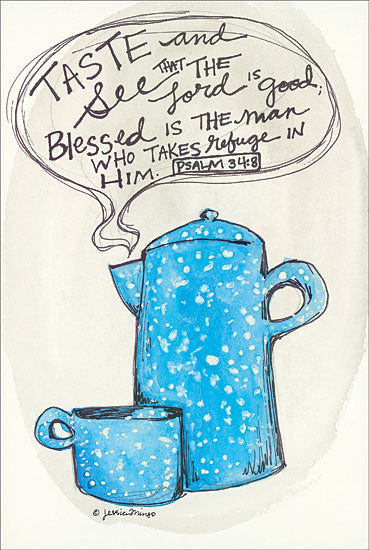 TASTE and
See THAT THE
Lord IS good;
Blessed IS THE man
WHO TAKES Refuge IN
HIM. PSALM 34:8
© Jessica Mingo